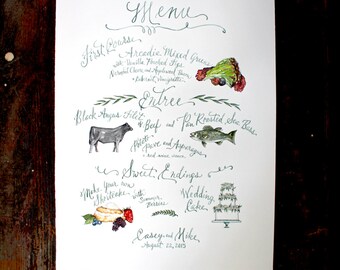 Menu
First Course
Arcadia Mixed Greens
with Vanilla Poached Figs,
Cabernet Vinaigrette
Entree
Black Angus Filet
of Beef and Pan Roasted Sea Bass
Potato
Puree and Asparagus
Sweet Endings
Make Your own
Shortcake with
Summer
Berries
Wedding
Cake
Casey and Mike
August 22, 2013